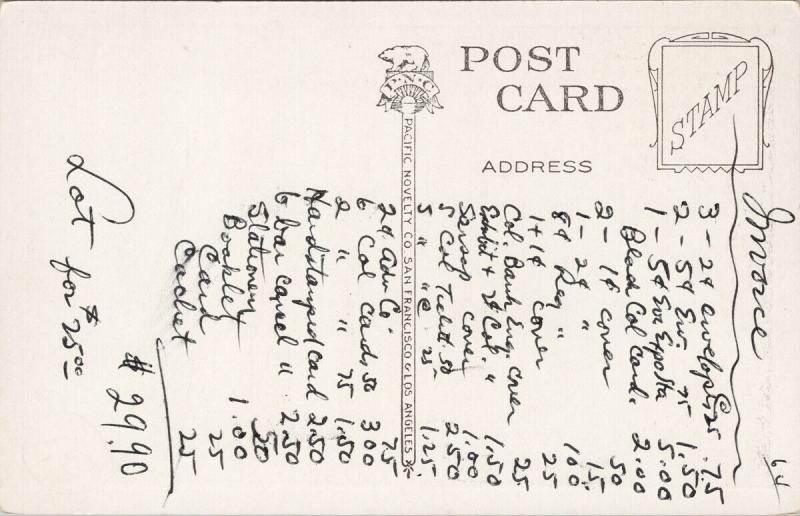 POST
CARD
STAMP
P. N. C.
ADDRESS
PACIFIC NOVELTY CO. SAN FRANCISCO & LOS ANGELES
Invoice
3 - 2¢ envelopes 25 .75
2 - 5¢ Env. 75 1.50
1 - 5¢ Env Exposta 5.00
Black Col Card. 2.00
2 - 1¢ cover 50
1 - 2¢ " 15
8¢ Reg " 1 00
1 + 1¢ cover 25
Col. Bank Eng. cover 25
Exhibit + 2¢ Col. " 1.50
Samp cover 1.00
5 Col Ticket 50 2.50
5 " " @ 25 1.25
2¢ Adv Co 75
6 Col cards 50 3 00
2 " " 75 1.50
Handstamped Card 2.50
6 bar cancel " 2.50
Stationery 50
Booklet 1.00
Card 25
Cachet 25
$ 29.90
Lot for $25.00
64